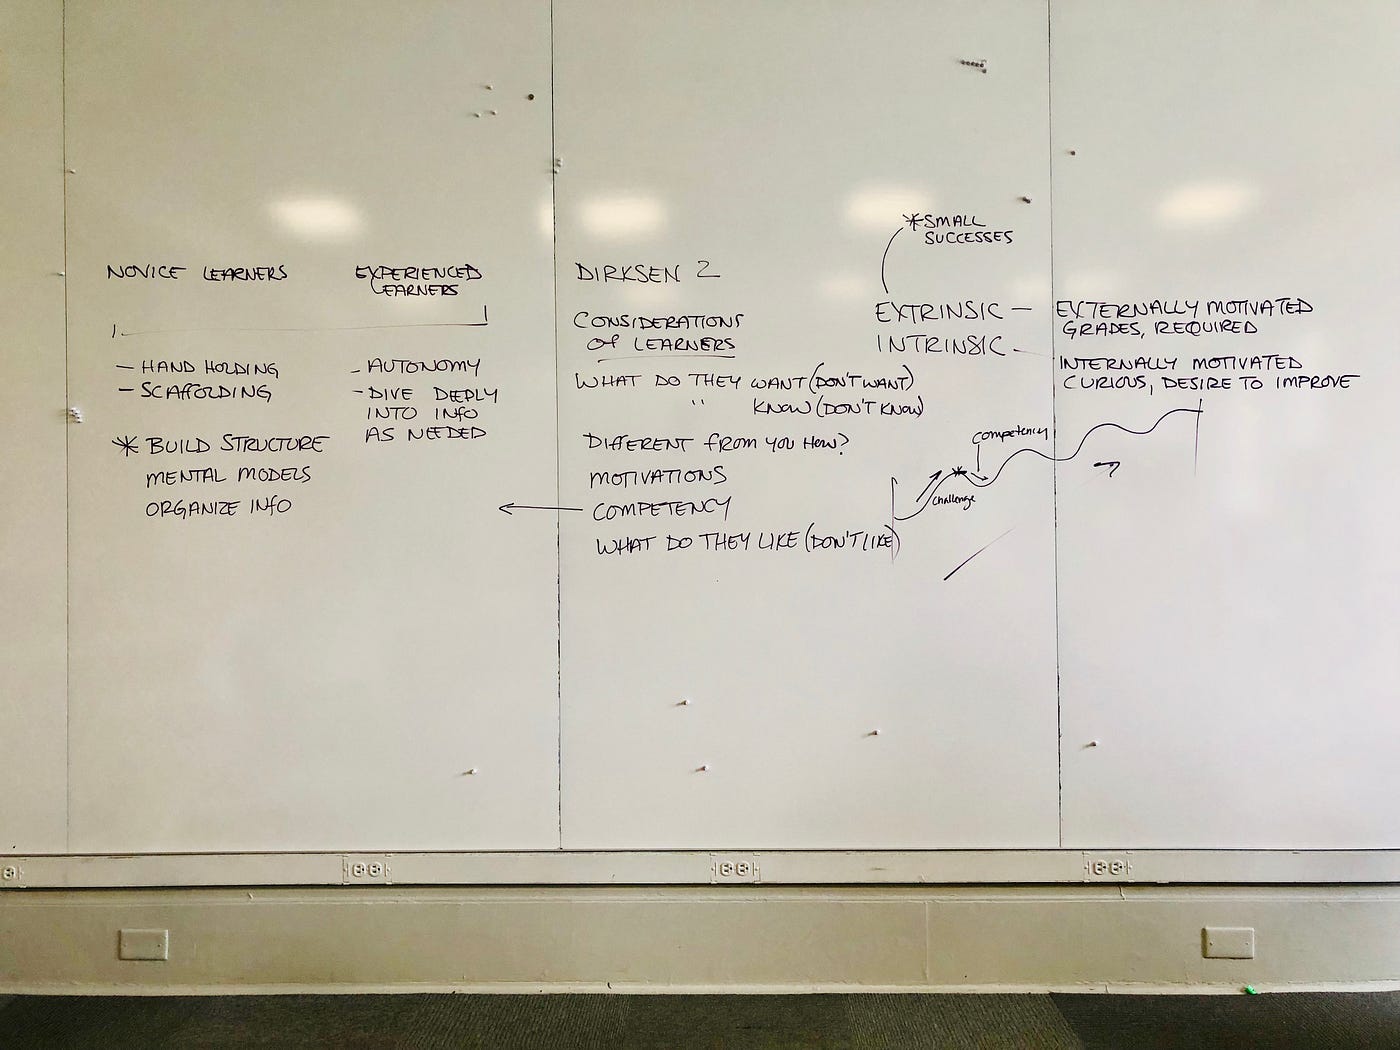 NOVICE LEARNERS
EXPERIENCED
LEARNERS
- HAND HOLDING
- SCAFFOLDING
* BUILD STRUCTURE
MENTAL MODELS
ORGANIZE INFO
- AUTONOMY
- DIVE DEEPLY
INTO INFO
AS NEEDED
DIRKSEN 2
CONSIDERATIONS
OF LEARNERS
WHAT DO THEY WANT (DON'T WANT)
" KNOW (DON'T KNOW)
DIFFERENT FROM YOU HOW?
MOTIVATIONS
COMPETENCY
WHAT DO THEY LIKE (DON'T LIKE)
* SMALL
SUCCESSES
EXTRINSIC -
INTRINSIC -
EXTERNALLY MOTIVATED
GRADES, REQUIRED
INTERNALLY MOTIVATED
CURIOUS, DESIRE TO IMPROVE
competency
challenge